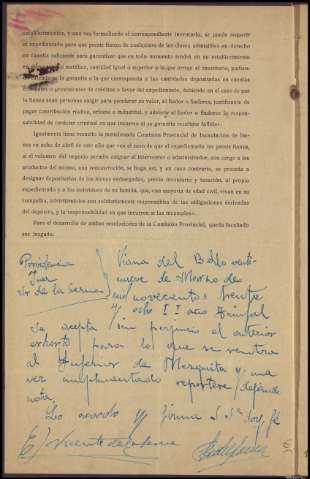 establecimientos, y una vez formalizado el correspondiente inventario, se puede requerir
al expedientado para que preste fianza de cualquiera de las clases admisibles en derecho
en cuantía suficiente para garantizar que en todo momento tendrá en su establecimiento
cantidad igual o superior a la que arroje el inventario,
la garantía a la que corresponda a las cantidades depositadas en cuentas
o provinientes de créditos a favor del expedientado, debiendo en el caso de que
la fianza sean personas exigir para ponderar su valor, al fiador o fiadores, justificante de
pagar contribución rústica, urbana o industrial, y advierte al fiador o fiadores la respon-
sabilidad de carácter criminal en que incurren si su garantía resultase fallida».
Igualmente tiene resuelto la mencionada Comisión Provincial de Incautación de bie-
nes en ocho de abril de este año que «en el caso de que el expedientado no preste fianza,
si el volumen del negocio permite asignar al interventor o administrador, con cargo a los
productos del mismo, una remuneración, se haga así, y en caso contrario, se proceda a
designar depositarios de los bienes embargados, previo inventario y tasación, al propio
expedientado y a los individuos de su familia, que, con mayoría de edad civil, vivan en su
compañía, advirtiéndoles son solidariamente responsables de las obligaciones derivadas
del depósito, y la responsabilidad en que incurren si las incumplen».
Para el desarrollo de ambas resoluciones de la Comisión Provincial, queda facultado
ese juzgado.
Providencia
Juez
Sr. de la Serna
Viana del Bollo veinti-
nueve de Marzo de
mil novecientos treinta
y ocho II año Triunfal
Se acepta sin perjuicio el anterior
exhorto para lo que se remitirá
al Inferior de Mezquita y una
vez cumplimentado repórtese dejando
nota.
Lo acordó y firma S. Sª. Doy fé
E/ Vicente de la Serna